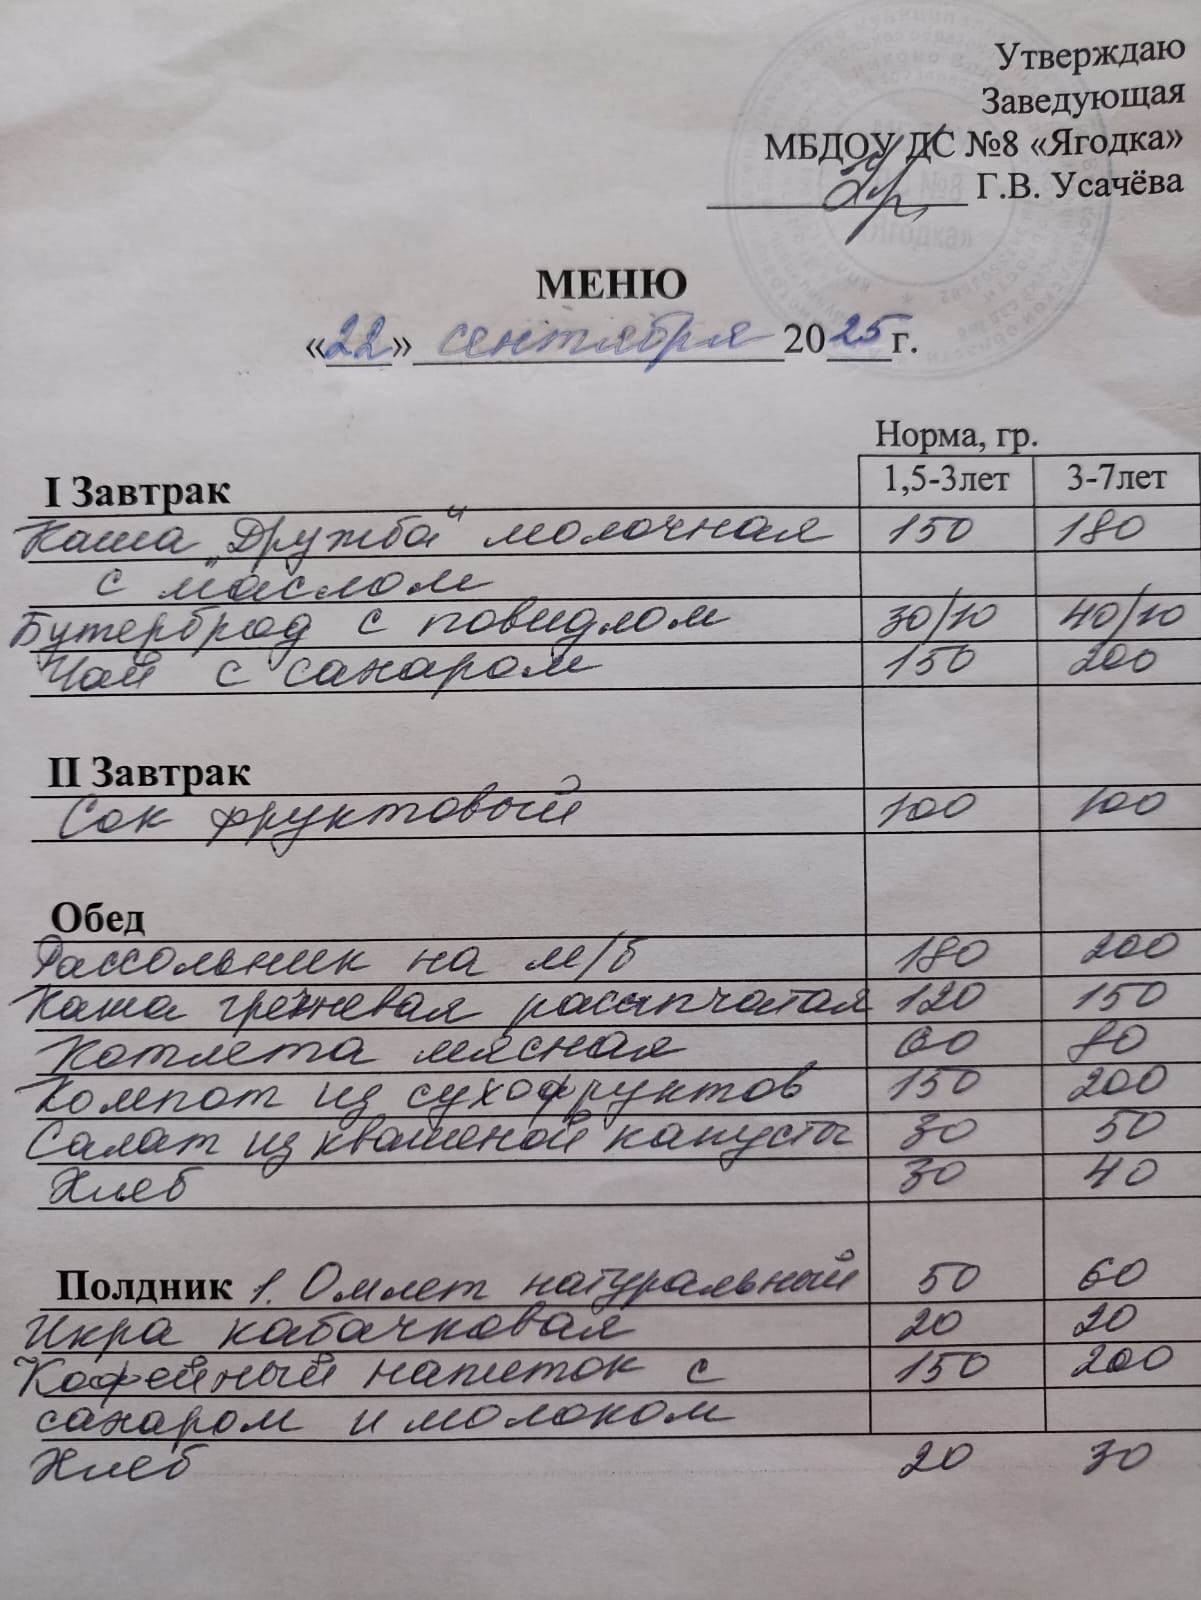 Утверждаю
Заведующая
МБДОУ ДС №8 «Ягодка»
Г.В. Усачёва
МЕНЮ
«22» сентября 2025 г.
Норма, гр.
I Завтрак 1,5-3лет 3-7лет
Каша „Дружба" молочная 150 180
с маслом
Бутерброд с повидлом 30/10 40/10
Чай с сахаром 150 200
II Завтрак
Сок фруктовый 100 100
Обед
Рассольник на м/б 180 200
Каша гречневая рассыпчатая 120 150
Котлета мясная 60 80
Компот из сухофруктов 150 200
Салат из квашеной капусты 30 50
Хлеб 30 40
Полдник 1. Омлет натуральный 50 60
Икра кабачковая 20 20
Кофейный напиток с 150 200
сахаром и молоком
Хлеб 20 30